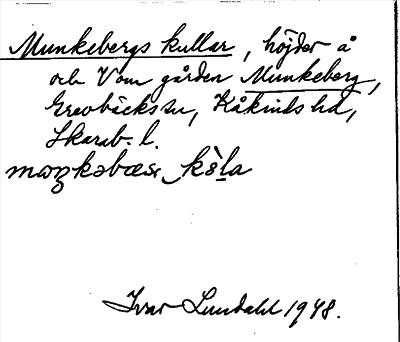 Munkebergs kullar, höjder å
och V om gården Munkeberg,
Grevbäcks sn, Kåkinds hd,
Skarab. l.
Ivar Lundahl 1948.